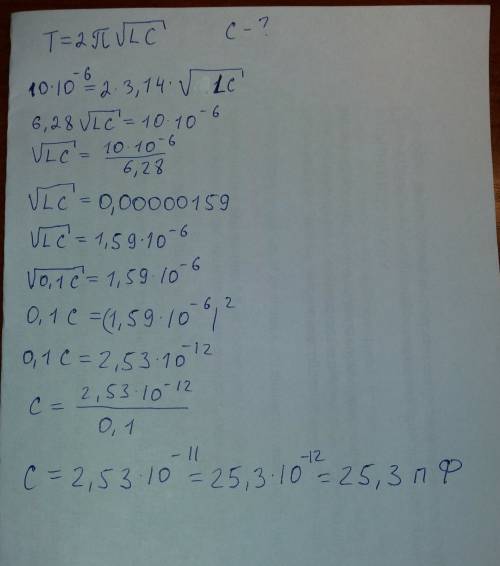 T=2π√LC   C-?
10·10⁻⁶=2·3,14·√LC
6,28√LC=10·10⁻⁶
√LC = 10·10⁻⁶/6,28
√LC=0,00000159
√LC=1,59·10⁻⁶
√0,1C=1,59·10⁻⁶
0,1C=(1,59·10⁻⁶)²
0,1C=2,53·10⁻¹²
C= 2,53·10⁻¹²/0,1
C=2,53·10⁻¹¹=25,3·10⁻¹²=25,3 п Ф